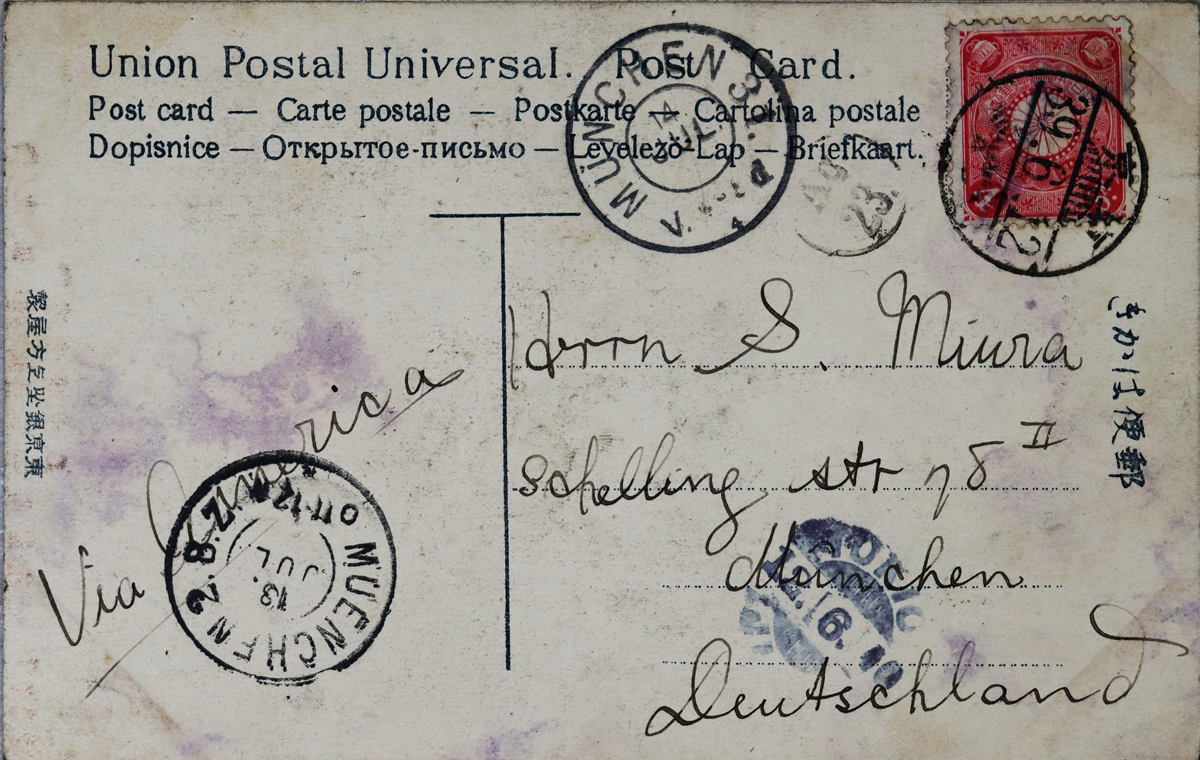 Union Postal Universal. Post Card.
Post card — Carte postale — Postkarte — Cartolina postale
Dopisnice — Открытое-письмо — Levelező-Lap — Briefkaart.
MÜNCHEN 31.
V.
14
JUL.
23.
39.6
きかは便郵
東京銀座上方屋製
Herrn S. Miura
Schelling str 78 II
München
Deutschland
Via America
MUENCHEN 2. B.Z.
13.
JUL
11-12
TOKIO
12.6.